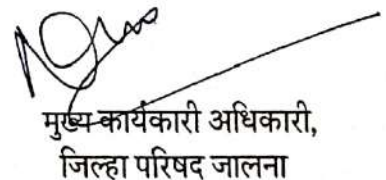 मुख्य कार्यकारी अधिकारी,
जिल्हा परिषद जालना